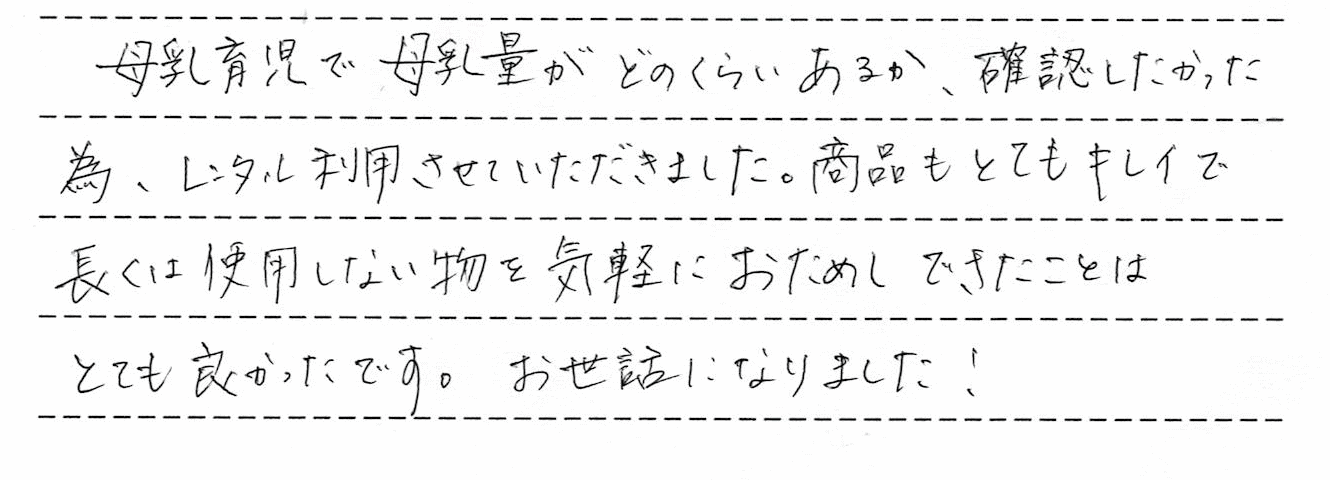 母乳育児で母乳量がどのくらいあるか、確認したかった
為、レンタル利用させていただきました。商品もとてもキレイで
長くは使用しない物を気軽におためしできたことは
とても良かったです。お世話になりました!